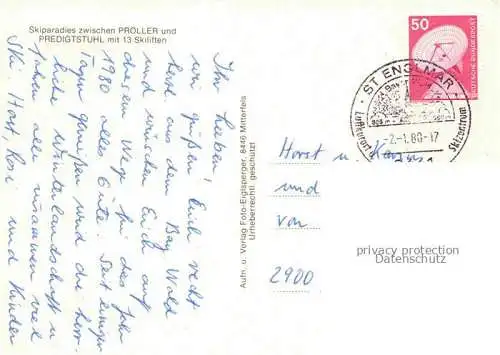 Skiparadies zwischen PRÖLLER und
PREDIGTSTUHL mit 13 Skiliften
Ihr Lieben! Euch recht
herzl. aus dem Bay. Wald
und wünschen Euch auf
diesem Wege für das Jahr
1980 alles Gute. Seit einigen
Tagen genießen wir die herr-
liche Winterlandschaft u.
fahren alle zusammen viel
Ski. Horst, Rosi und Kinder
Aufn. u. Verlag Foto-Eiglsperger, 8446 Mitterfels
Urheberrechtl. geschützt
50
DEUTSCHE BUNDESPOST
ST ENGLMAR
Luftkurort
Skizentrum
-2.-1.80-17
Horst u.
und
von
2900
privacy protection
Datenschutz